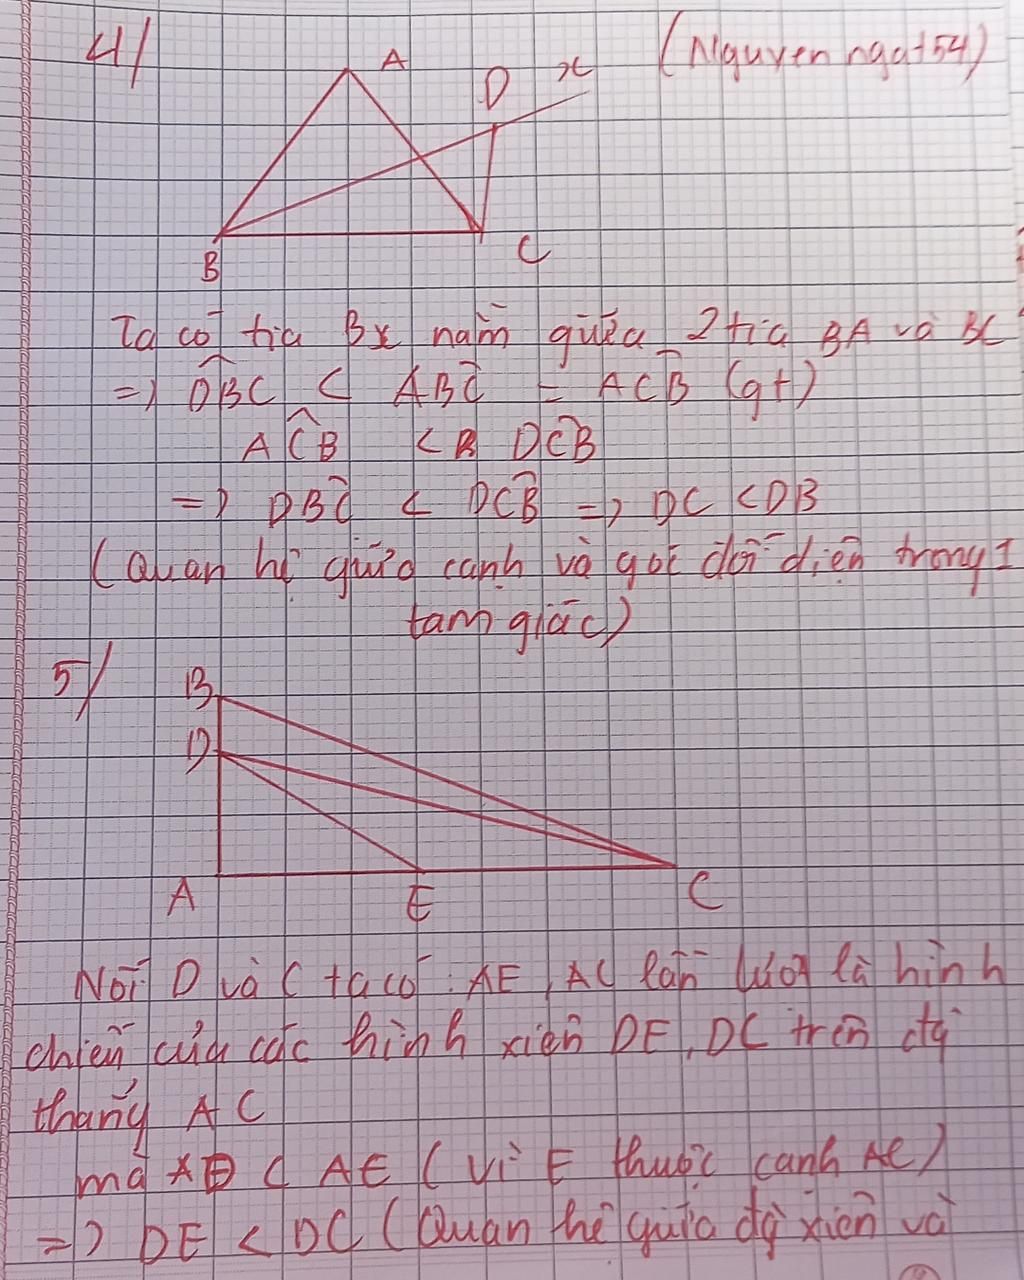 4/
A
D
x
(Nguyenngat54)
B
C
Ta có tia Bx nằm giữa 2 tia BA và BC
=> DBC < ABC = ACB (gt)
ACB < DCB
=> DBC < DCB => DC < DB
(Quan hệ giữa cạnh và góc đối diện trong 1
tam giác)
5/
B
D
A
E
C
Nối D và C ta có: AE, AC lần lượt là hình
chiếu của các hình xiên DE, DC trên đg
thẳng AC
mà AE < AE (vì E thuộc cạnh AC)
=> DE < DC (Quan hệ giữa đg xiên và